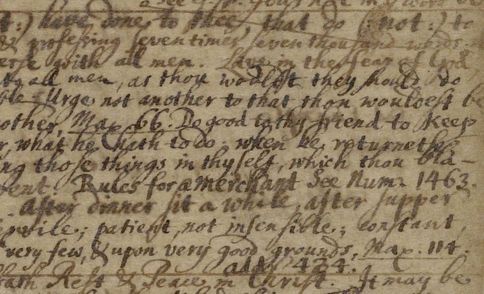 have done to thee that do (: not :) to
& professing seven times seven thousand
with all men. Live in the fear of God
all men, as thou wouldst they should do
Urge not another to that thou wouldest be
other, Max. 66. Do good to thy friend to keep
what he hath to do when he returneth
ing those things in thy self, which thou bla-
ent. Rules for a Merchant See Num. 1463.
After dinner sit a while, after supper
patient, not insensible; constant,
very few, & upon very good grounds, Max. 114.
424.
hath Rest & Peace in Christ. It may be